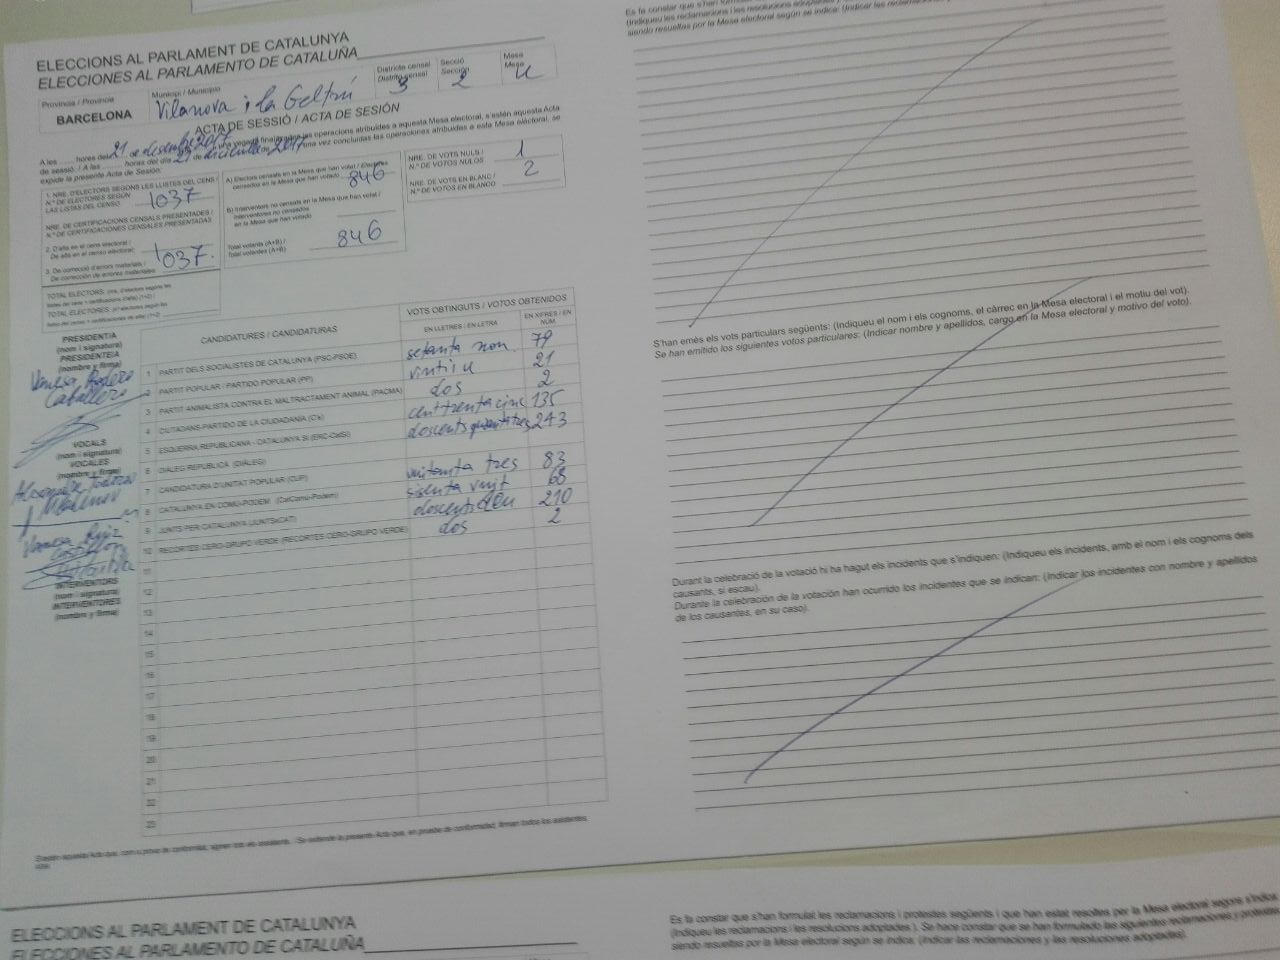 ELECCIONS AL PARLAMENT DE CATALUNYA
ELECCIONES AL PARLAMENTO DE CATALUÑA
Província / Provincia
BARCELONA
Municipi / Municipio
Vilanova i la Geltrú
Districte censal
Distrito censal
3
Secció
Sección
2
Mesa
Mesa
U
ACTA DE SESSIÓ / ACTA DE SESIÓN
A les ...... hores del 21 de desembre 2017 una vegada finalitzades les operacions atribuïdes a aquesta Mesa electoral, s'estén aquesta Acta
de sessió. / A las ...... horas del día 21 de diciembre de 2017 una vez concluidas las operaciones atribuidas a esta Mesa electoral, se
expide la presente Acta de Sesión:
1. NRE. D'ELECTORS SEGONS LES LLISTES DEL CENS
N.º DE ELECTORES SEGÚN
LAS LISTAS DEL CENSO
1037
NRE. DE CERTIFICACIONS CENSALS PRESENTADES /
N.º DE CERTIFICACIONES CENSALES PRESENTADAS
2. D'alta en el cens electoral /
De alta en el censo electoral:
3. De correcció d'errors materials /
De corrección de errores materiales:
1037.
A) Electors censats en la Mesa que han votat / Electores
censados en la Mesa que han votado
846
B) Interventors no censats en la Mesa que han votat /
Interventores no censados
en la Mesa que han votado
Total votants (A+B) /
Total votantes (A+B)
846
NRE. DE VOTS NULS /
N.º DE VOTOS NULOS
1
NRE. DE VOTS EN BLANC /
N.º DE VOTOS EN BLANCO
2
PRESIDENTIA
(nom i signatura)
PRESIDENTEIA
(nombre y firma)
Caballero
VOCALS
(nom i signatura)
VOCALES
(nombre y firma)
Vanesa Ruiz
INTERVENTORS
(nom i signatura)
INTERVENTORES
(nombre y firma)
CANDIDATURES / CANDIDATURAS
VOTS OBTINGUTS / VOTOS OBTENIDOS
EN LLETRES / EN LETRA
EN XIFRES / EN NÚM.
1 PARTIT DELS SOCIALISTES DE CATALUNYA (PSC-PSOE) setanta nou 79
2 PARTIT POPULAR / PARTIDO POPULAR (PP) vintiu 21
3 PARTIT ANIMALISTA CONTRA EL MALTRACTAMENT ANIMAL (PACMA) dos 2
4 CIUTADANS-PARTIDO DE LA CIUDADANÍA (C's) cent trenta cinc 135
5 ESQUERRA REPUBLICANA - CATALUNYA SÍ (ERC-CatSí) doscents quaranta tres 243
6 DIÀLEG REPUBLICÀ (DIÀLEG)
7 CANDIDATURA D'UNITAT POPULAR (CUP) vuitanta tres 83
8 CATALUNYA EN COMÚ-PODEM (CatComú-Podem) sisenta vuit 68
9 JUNTS PER CATALUNYA (JUNTSxCAT) doscents deu 210
10 RECORTES CERO-GRUPO VERDE (RECORTES CERO-GRUPO VERDE) dos 2
11
12
13
14
15
16
17
18
19
20
21
22
23
(Indiqueu les reclamacions i les resolucions adoptades
siendo resueltas por la Mesa electoral según se indica: (Indicar las
S'han emès els vots particulars següents: (Indiqueu el nom i els cognoms, el càrrec en la Mesa electoral i el motiu del vot).
Se han emitido los siguientes votos particulares: (Indicar nombre y apellidos, cargo en la Mesa electoral y motivo del voto).
Durant la celebració de la votació hi ha hagut els incidents que s'indiquen: (Indiqueu els incidents, amb el nom i els cognoms dels
causants, si escau).
Durante la celebración de la votación han ocurrido los incidentes que se indican: (Indicar los incidentes con nombre y apellidos
de los causantes, en su caso).
ELECCIONS AL PARLAMENT DE CATALUNYA
ELECCIONES AL PARLAMENTO DE CATALUÑA
Es fa constar que s'han formulat les reclamacions i protestes següents i que han estat resoltes per la Mesa electoral segons s'indica
(Indiqueu les reclamacions i les resolucions adoptades). Se hace constar que se han formulado las siguientes reclamaciones y protestas
siendo resueltas por la Mesa electoral según se indica: (Indicar las reclamaciones y las resoluciones adoptadas).